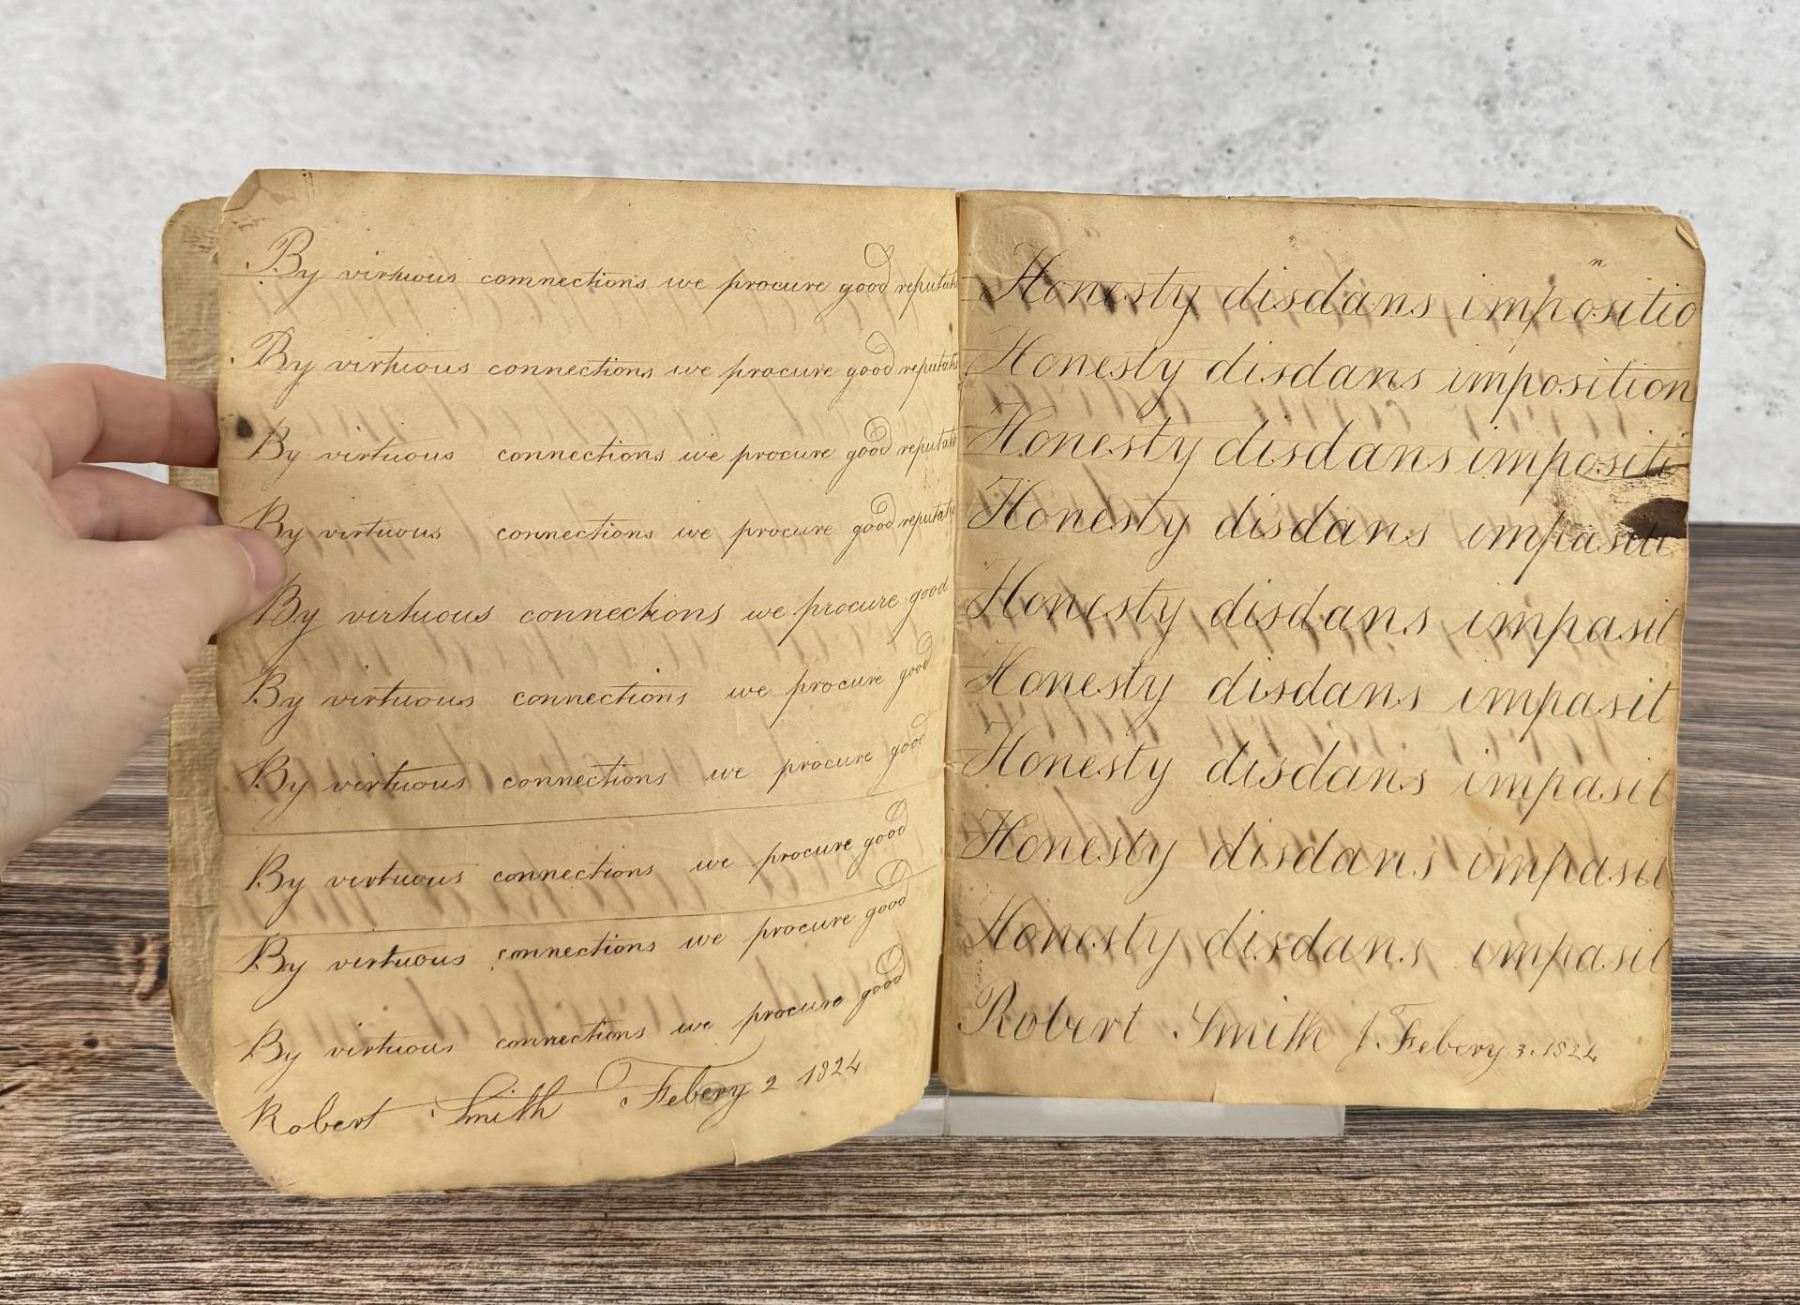 By virtuous comnections we procure good reputati
By virtuous connections we procure good reputati
By virtuous connections we procure good reputati
By virtuous connections we procure good reputati
By virtuous connections we procure good
By virtuous connections we procure good
By virtuous connections we procure good
By virtuous connections we procure good
By virtuous connections we procure good
By virtuous connections we procure good
Robert Smith Febery 2 1824
n
Honesty disdans impositio
Honesty disdans imposition
Honesty disdans impositi
Honesty disdans impasiti
Honesty disdans impasit
Honesty disdans impasit
Honesty disdans impasit
Honesty disdans impasit
Honesty disdans impasit
Robert Smith Febery 3. 1824